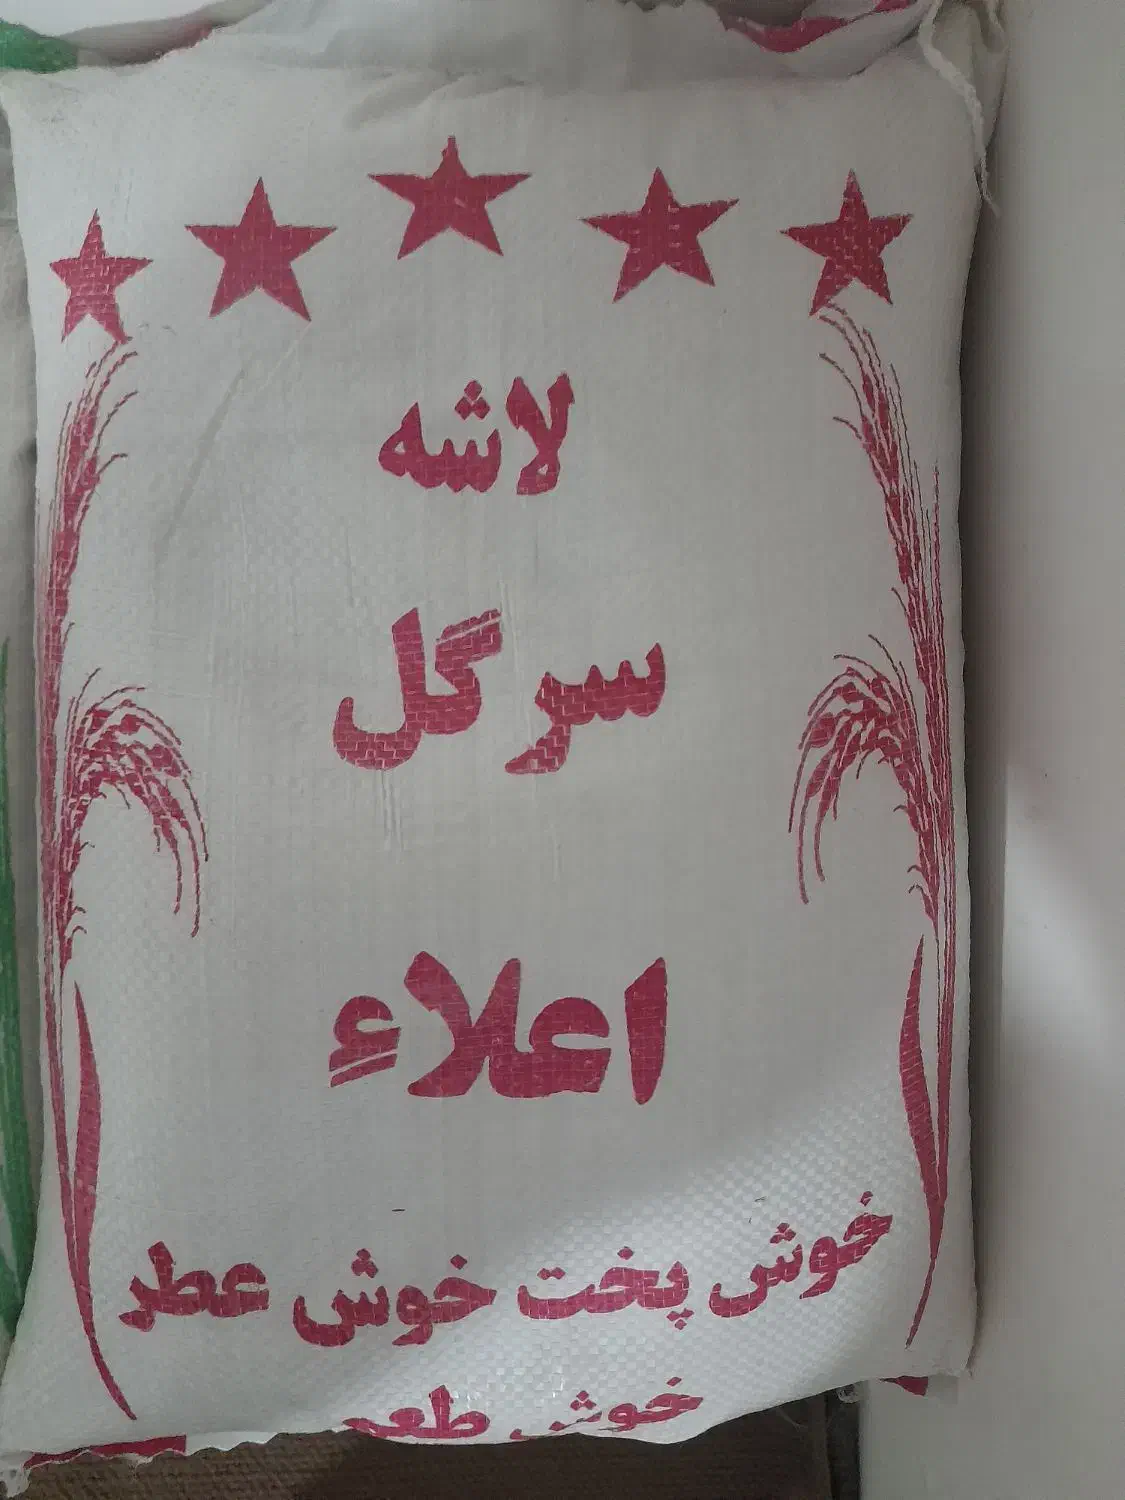 لاشه
سرگل
اعلاء
خوش پخت خوش عطر
خوش طعم